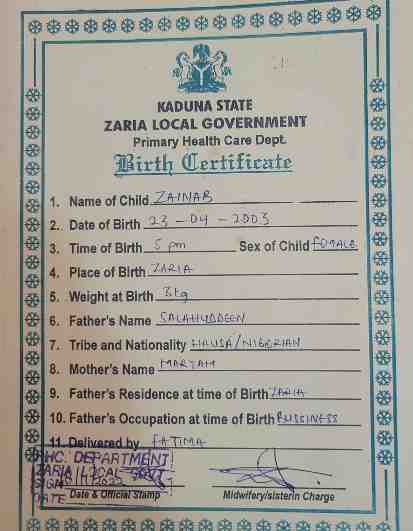 KADUNA STATE
ZARIA LOCAL GOVERNMENT
Primary Health Care Dept.
Birth Certificate
1. Name of Child ZAINAB
2. Date of Birth 23-04-2003
3. Time of Birth 5 pm Sex of Child FEMALE
4. Place of Birth ZARIA
5. Weight at Birth 3kg
6. Father's Name SALAHUDDEEN
7. Tribe and Nationality HAUSA/NIGERIAN
8. Mother's Name MARYAM
9. Father's Residence at time of Birth ZARIA
10. Father's Occupation at time of Birth BUSSINESS
11. Delivered by FATIMA
PHC. DEPARTMENT
ZARIA LOCAL
SIGN
DATE
Date & Official Stamp Midwifery/sisterin Charge